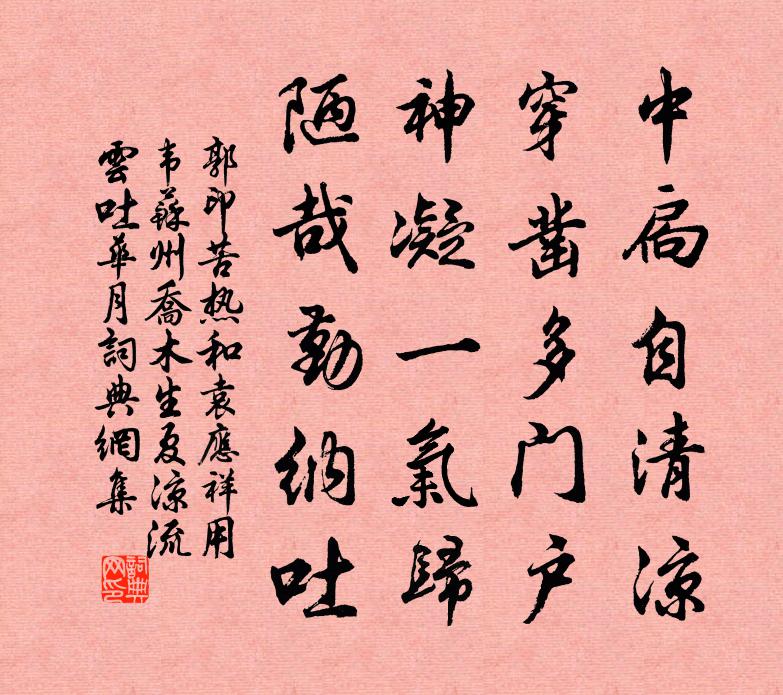 中扃自清涼
穿鑿多門户
神凝一氣歸
陋哉勤納吐
郭印苦热和袁應祥用
韦蘇州喬木生夏涼流
雲吐華月詞典網集
詞典网印